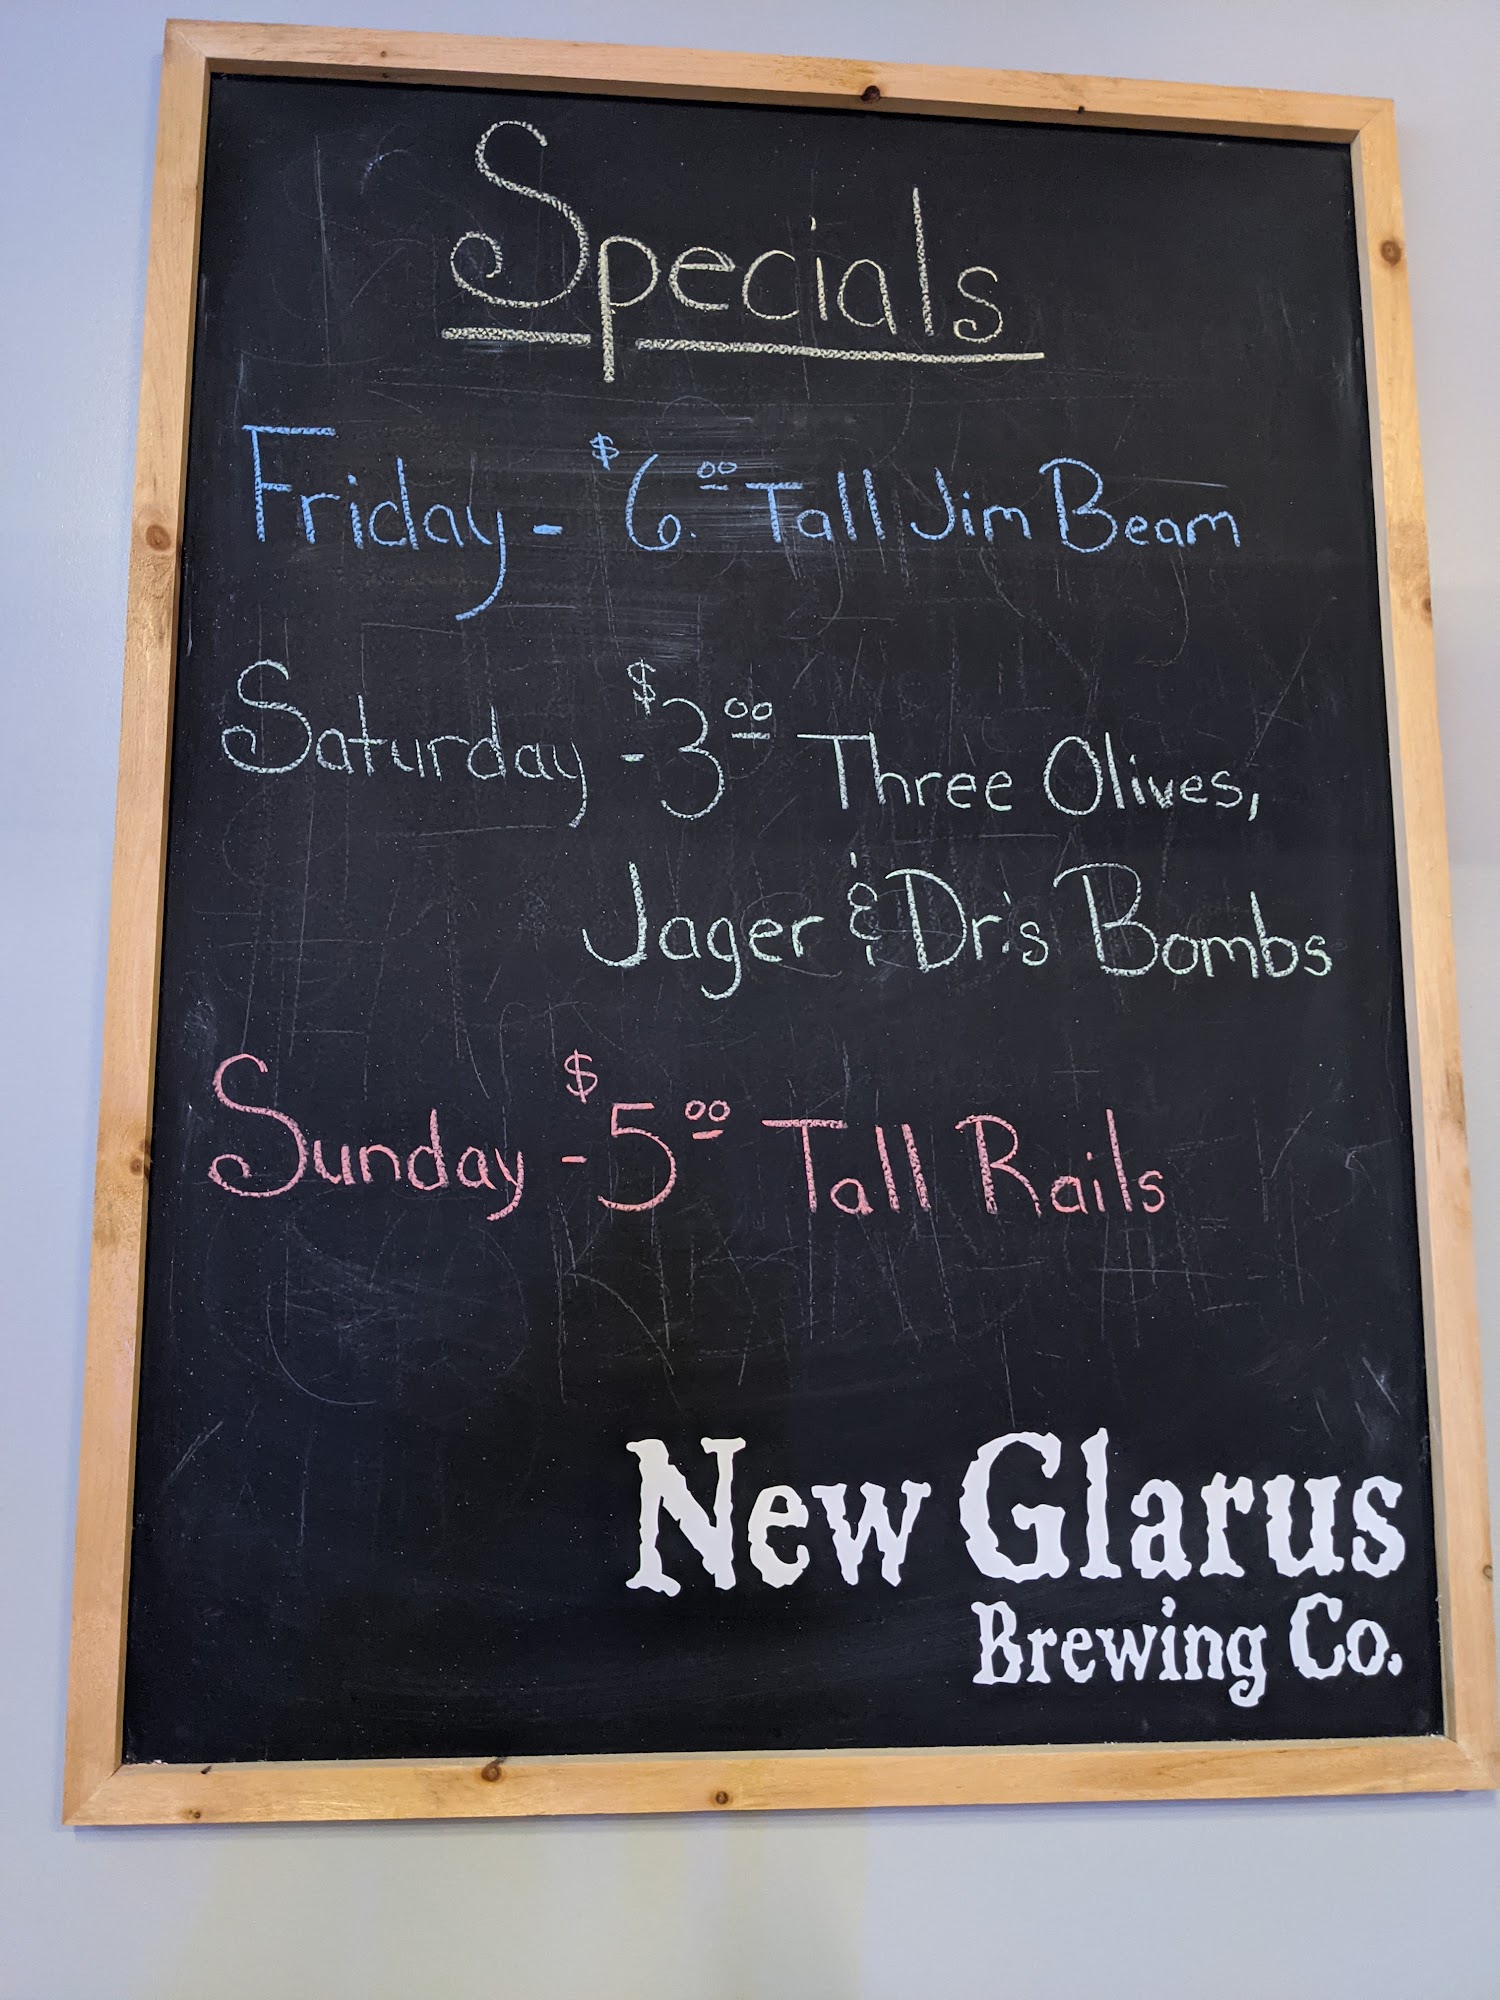 Specials
Friday - $6.00 Tall Jim Beam
Saturday - $3 00 Three Olives,
Jager & Dr.'s Bombs
Sunday - $5 00 Tall Rails
New Glarus
Brewing Co.